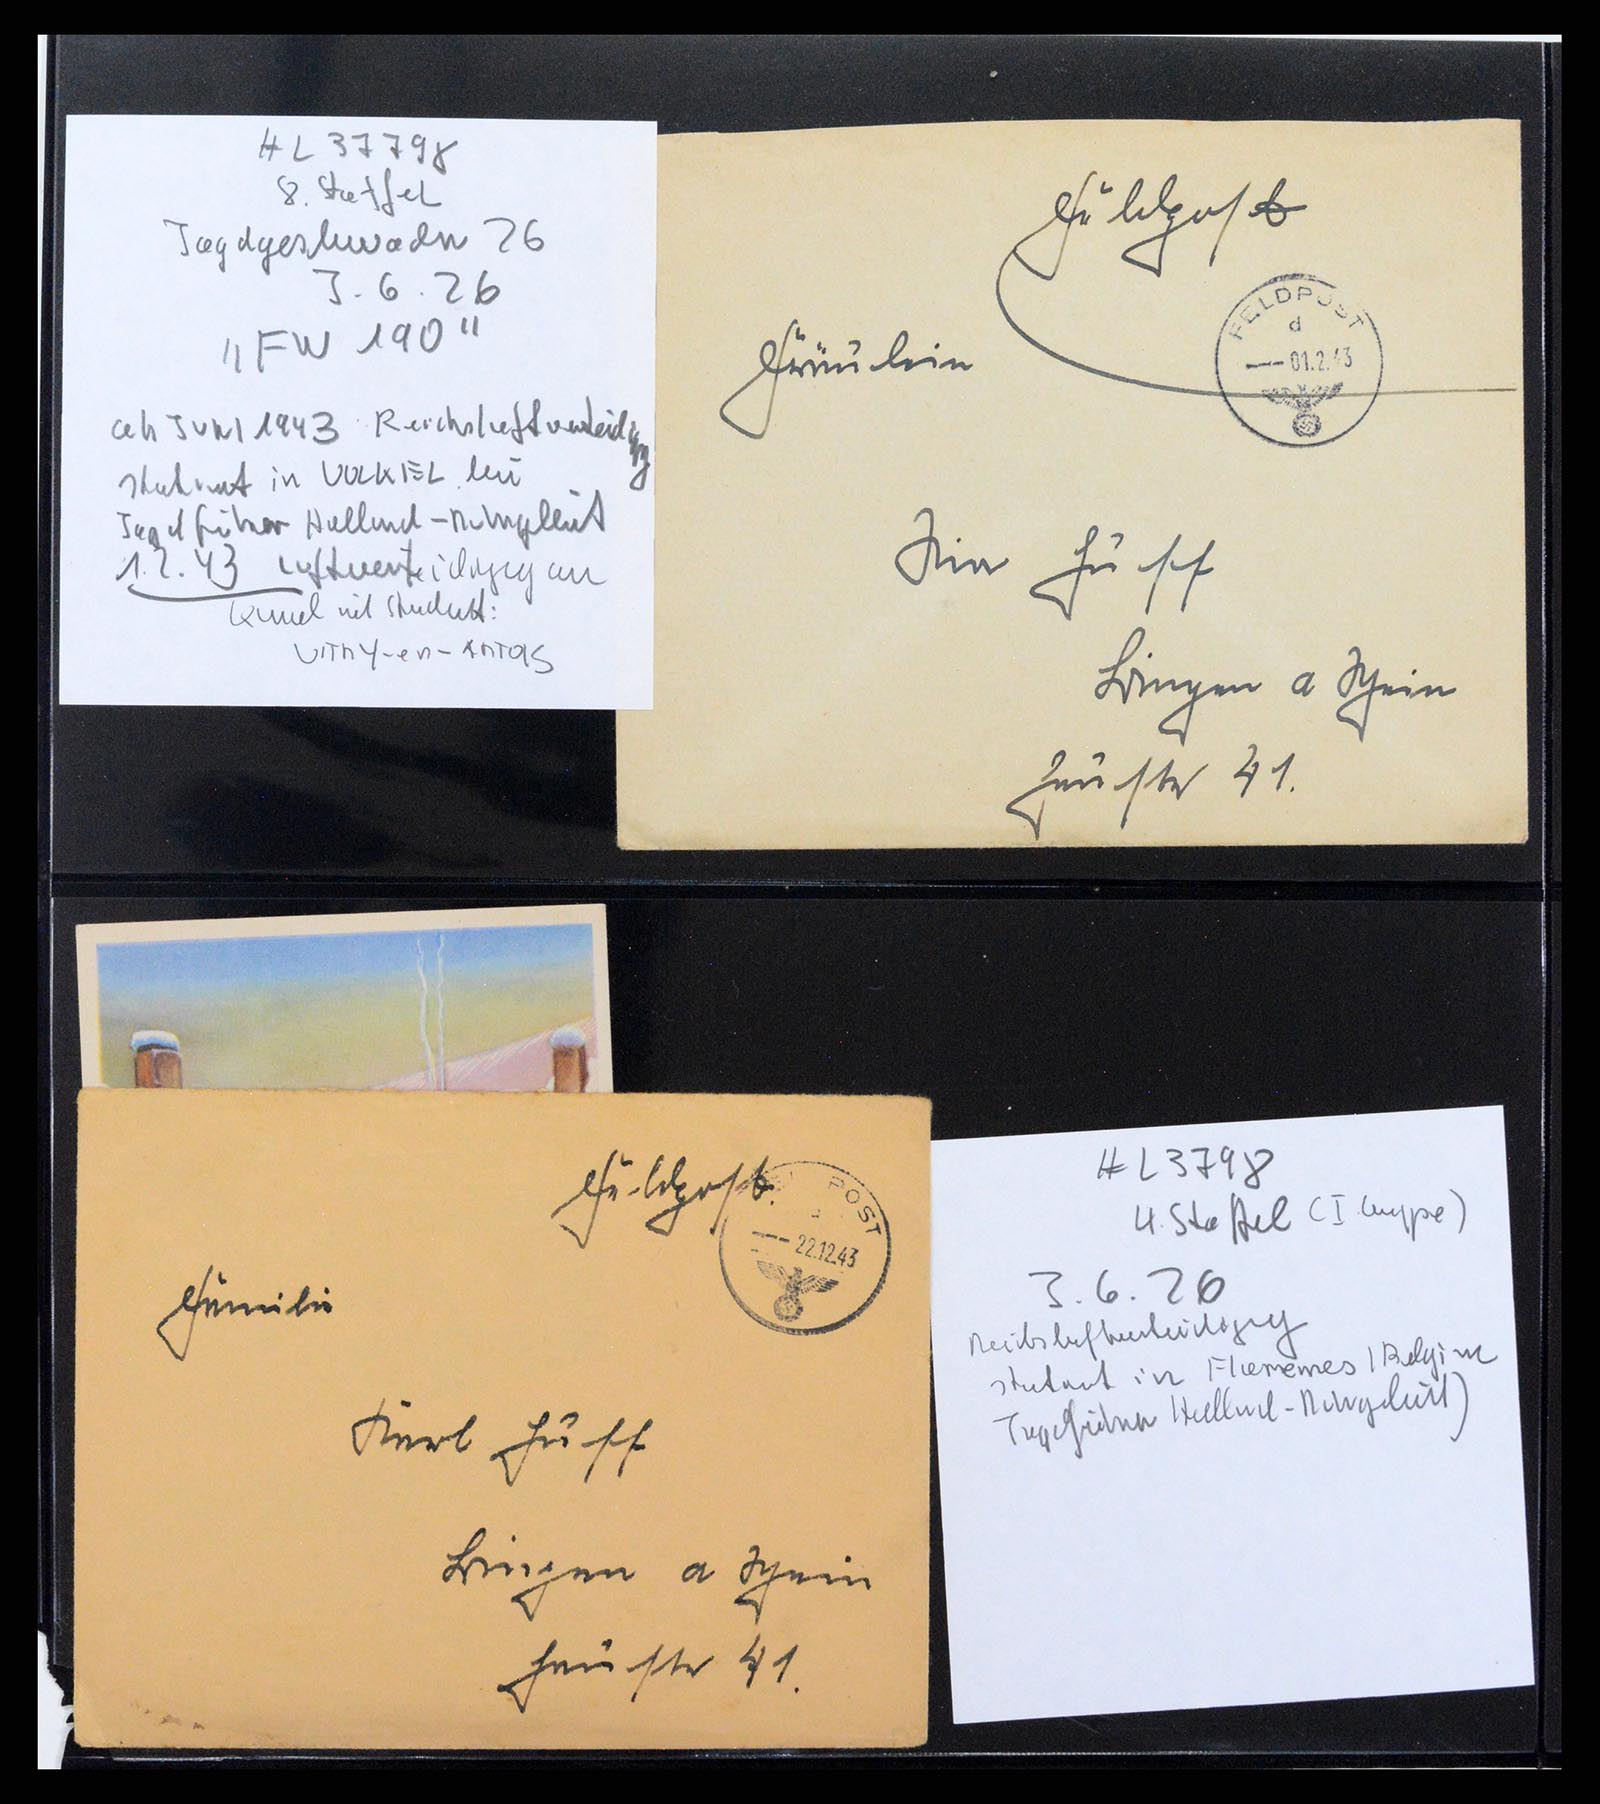 # L 37798
8. Staffel
Jagdgeschwader 26
J. G. 26
"FW 190"
ab JUNI 1943 Reichsluftverteidigung
stationiert in VOLKEL bei
Jagdführer Holland-Ruhrgebiet
1.2.43 Luftverteidigung am
Kanal mit Standort:
VITRY-en-ARTOIS
Feldpost
FELDPOST
d
01.2.43
Fräulein
Huff
Bingen a Rhein
Haustr 41.
Feldpost.
POST
22.12.43
Familie
Karl Huff
Bingen a Rhein
Haustr 41.
# L 3798
4. Staffel (I. Gruppe)
J. G. 26
Reichsluftverteidigung
in Florennes / Belgien
Jagdführer Holland-Ruhrgebiet)